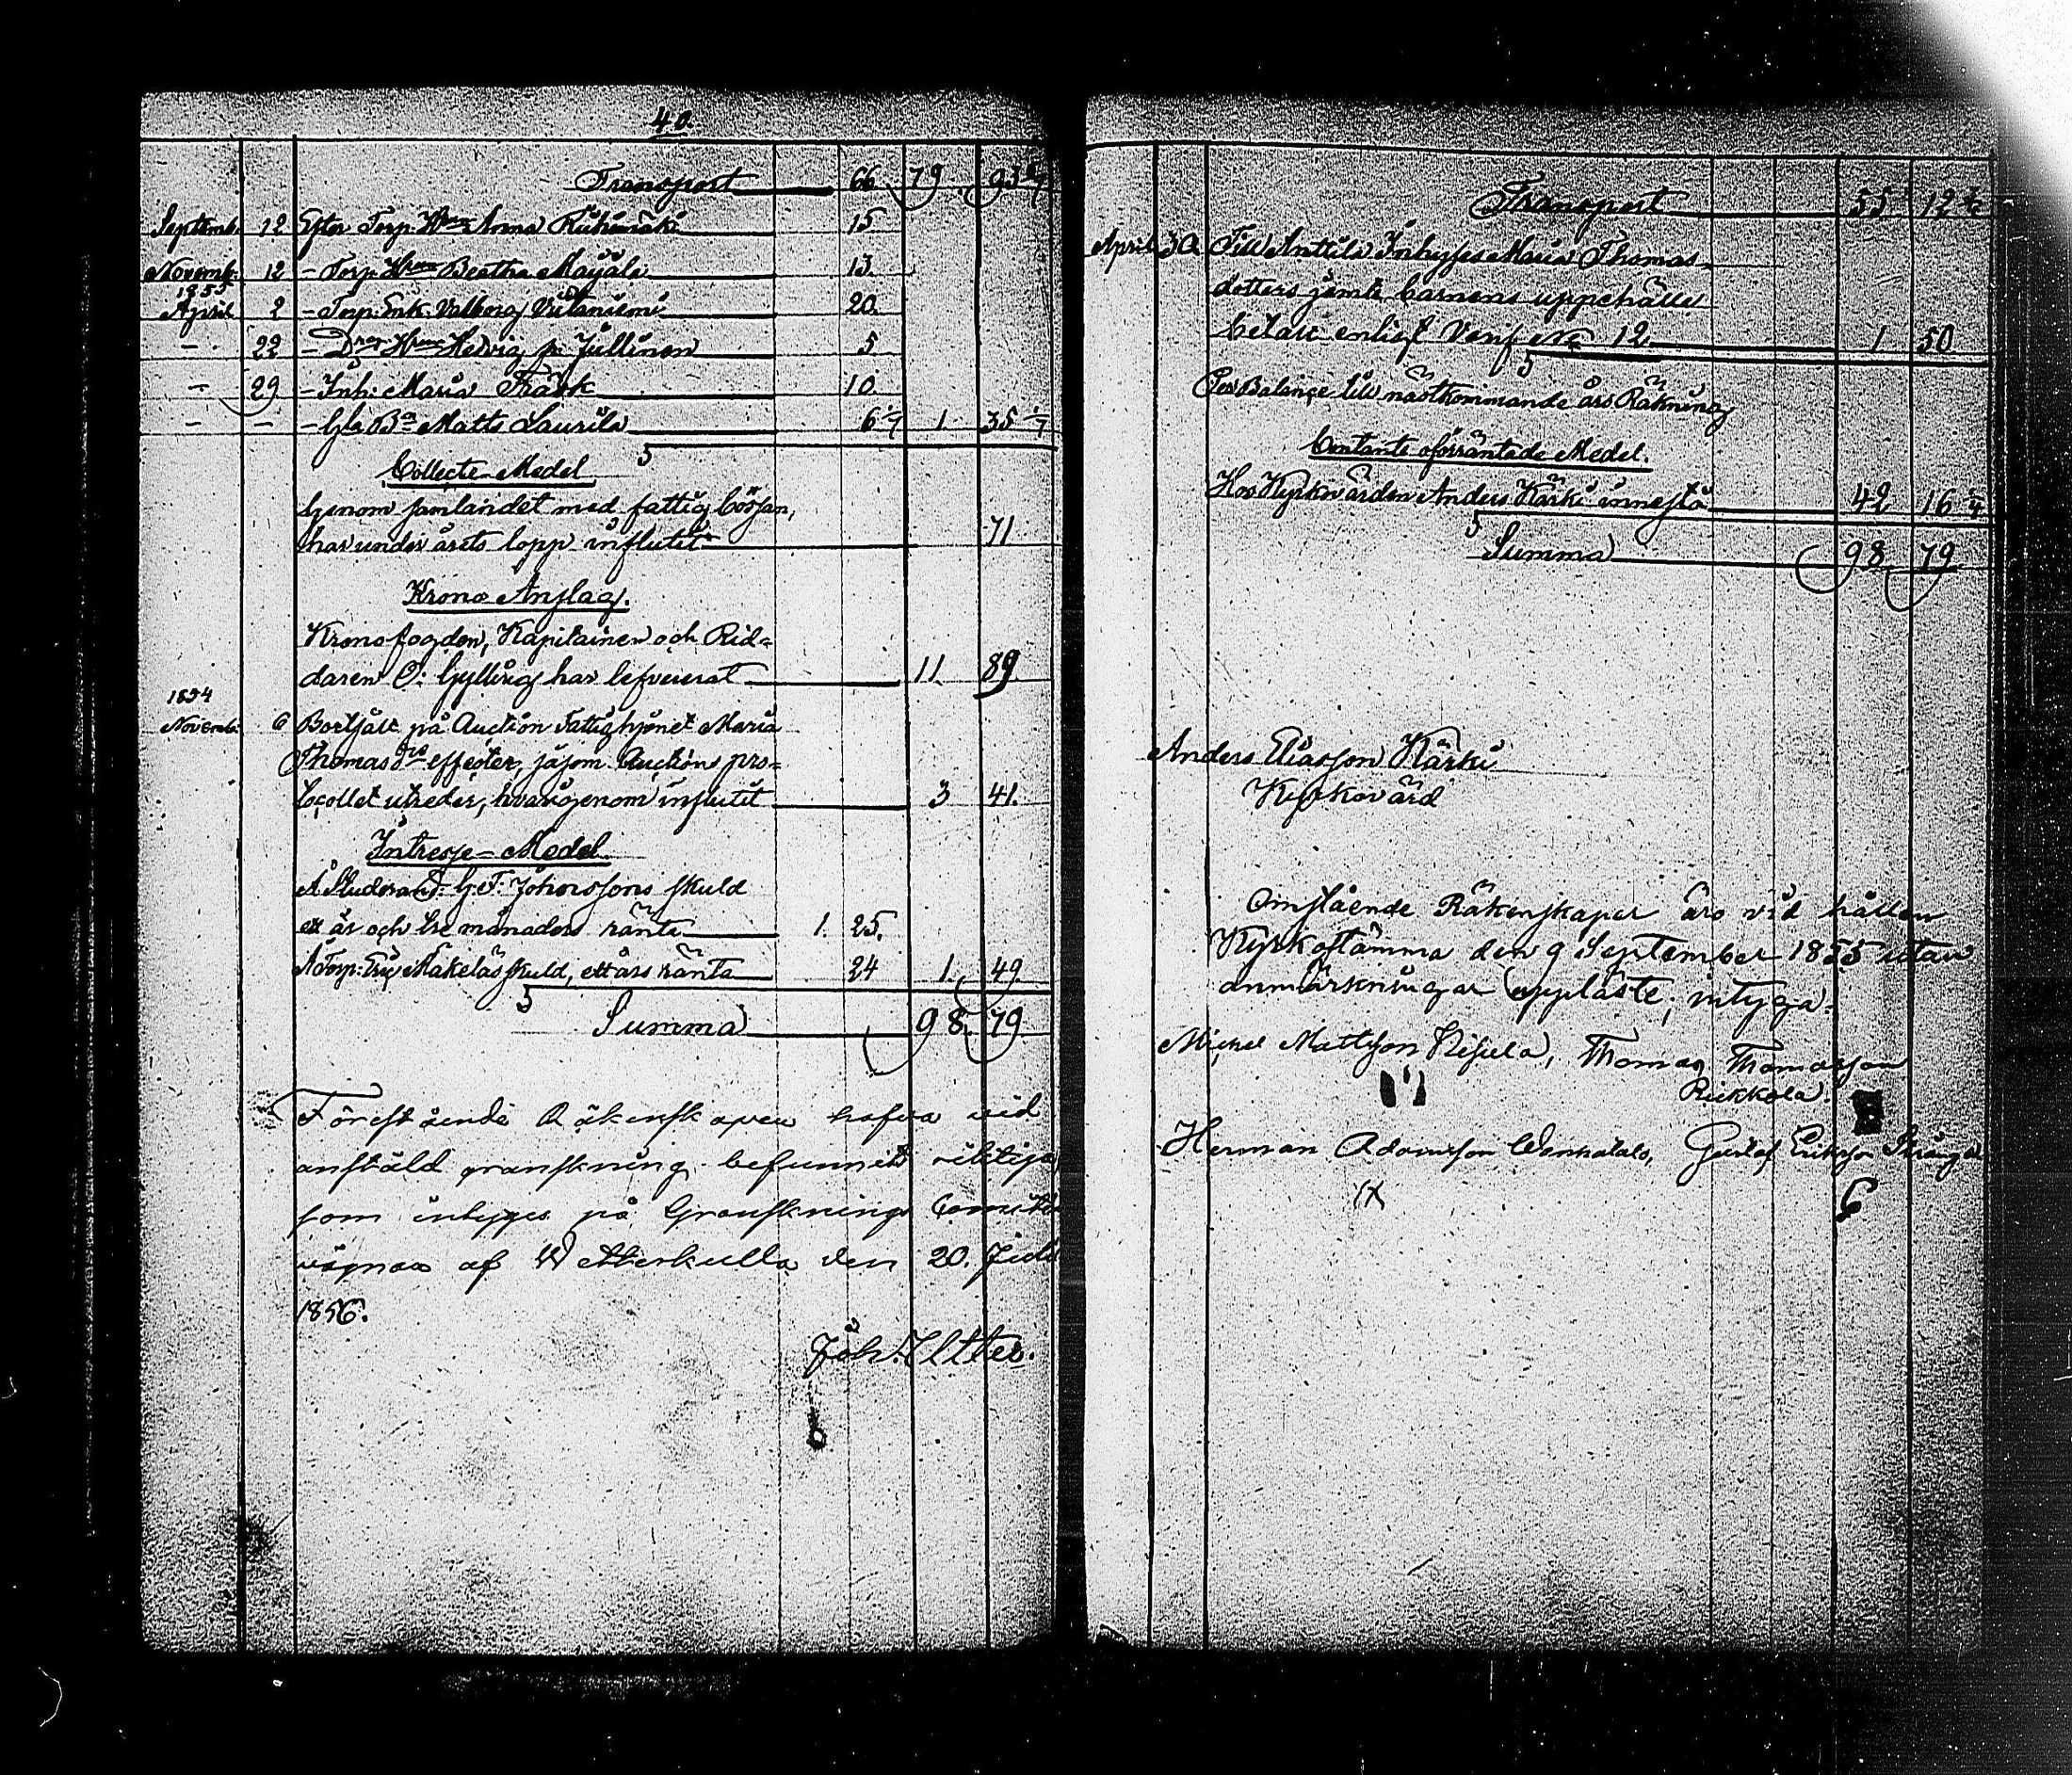 40.
Transport 66 79 93 6/7
Septemb. 12 Efter Torp. Hrun Anna Riihimäki 15
Novemb. 12 - Torp. Hrun Beatha Maijala 13.
1855
April 2 - Torp. Enk. Valborg Vitaniemi 20.
- 22 - Drag Hrun Hedvig Jullinen 5
- 29 - Inh: Maria Träsk 10.
- - - Gla Bn Matts Laurila 6 1/7 1 35 1/7
Collecte-Medel
Genom samlandet med fattig börsan,
har under årets lopp influtit 71
Krono Anslag.
Kronofogden, Kapitainen och Rid-
daren O: Gylling har lefvererat 11. 89
1854
Novemb. 6 Bortsålt på Auction Fattighjonet Maria
Thomasdrs effecter, såsom Auctions pro-
tocollet utreder, hvarigenom influtit 3 41.
Intresse-Medel
Å Studerand: G: F: Johnssons skuld
ett år och tre månaders ränta 1. 25.
Å Torp: Eric Makeläs skuld, ett års ränta 24 1. 49
Summa 98. 79
Förestående Räkenskaper hafva vid
anstäld granskning befunnits riktiga
som intyges på Gransknings Comiténs
vägnar af Wetterkulla den 20. Juli
1856.
Joh. Ilttes.
Transport 55 12 6/7
April 30 Till Anttila Inhyses Maria Thomas-
dotters jemte barnens uppehälle
betalt enligt Verif No 12 1 50
Per Balance till nästkommande års Räkning
Contante oförräntade Medel.
Hos Kyrkovärden Anders Kärki innestå 42 16 1/7
Summa 98 79
Anders Eliasson Kärki
Kyrkovärd
Omstående Räkenskaper äro vid hållen
Kyrkostämma den 9 September 1855 utan
anmärkningar uppläste, intyga:
Michel Mattsson Risula, Thomas Thomasson
Rickkola.
Herman Adamsson Wankalalo, Gustaf Eriksson Stränga